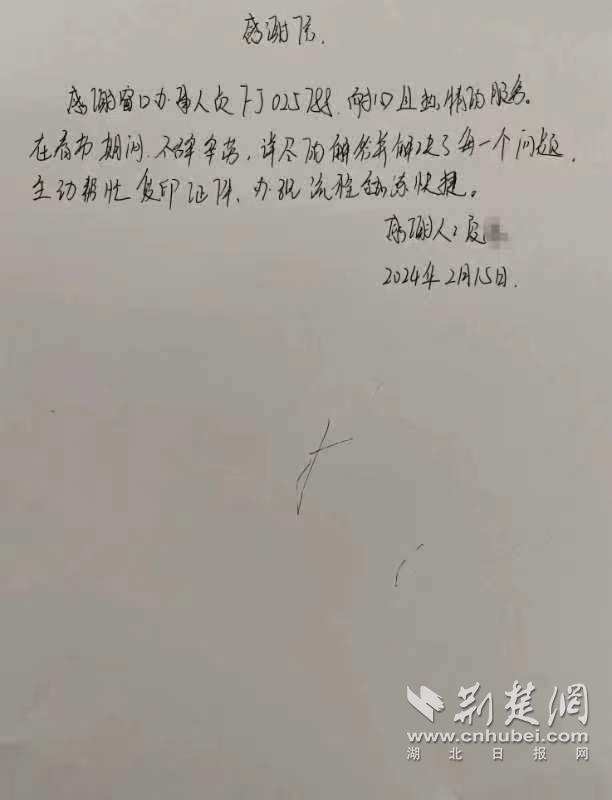 感谢信.
感谢窗口办事人员FJ025788.耐心且热情的服务。
在春节期间.不辞辛苦,详尽的解答并解决了每一个问题.
主动帮忙复印证件、办理流程快捷。
感谢人:夏
2024年2月15日.
荆楚网
www.cnhubei.com
湖北日报网